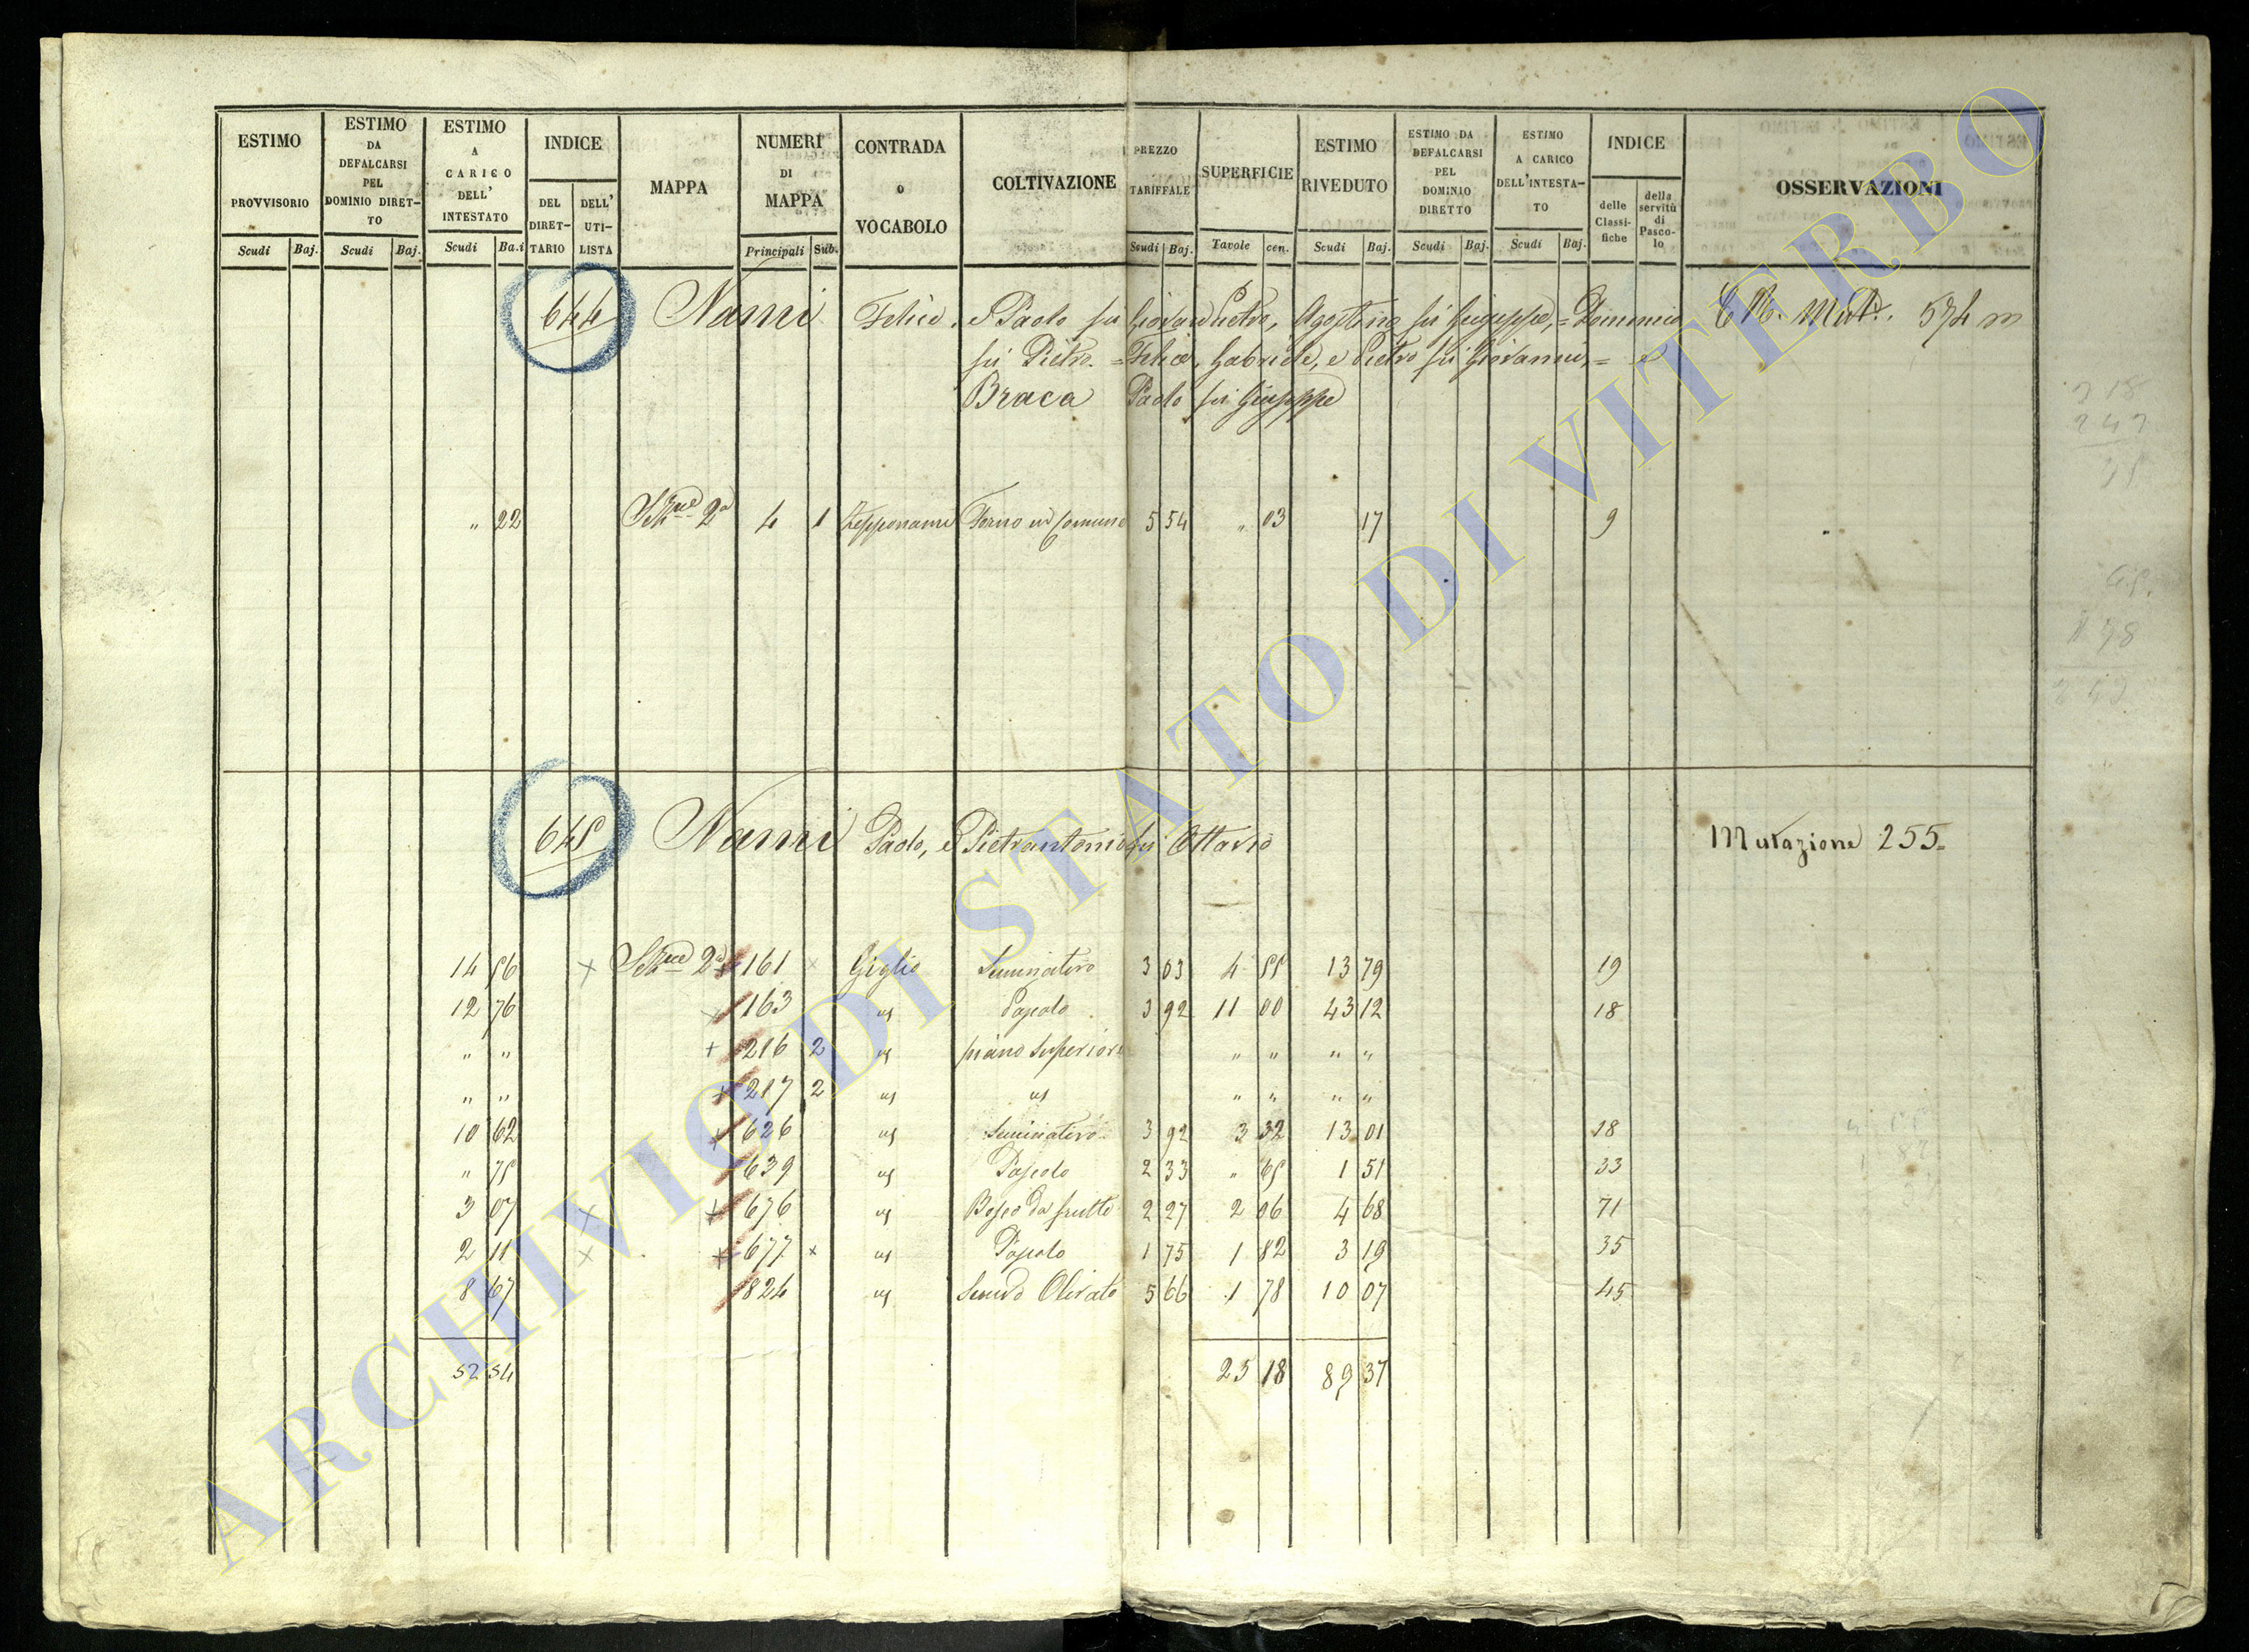 ESTIMO PROVVISORIO
ESTIMO DA DEFALCARSI PEL DOMINIO DIRET-TO
ESTIMO A CARICO DELL' INTESTATO
INDICE
DEL DIRET-TARIO
DELL' UTI-LISTA
MAPPA
NUMERI DI MAPPA
CONTRADA O VOCABOLO
COLTIVAZIONE
PREZZO TARIFFALE
SUPERFICIE
ESTIMO RIVEDUTO
ESTIMO DA DEFALCARSI PEL DOMINIO DIRETTO
ESTIMO A CARICO DELL'INTESTA-TO
INDICE
delle Classi-fiche
della servitù di Pasco-lo
OSSERVAZIONI
Scudi Baj. Scudi Baj. Scudi Ba.i Principali Sub. Scudi Baj. Tavole cen. Scudi Baj. Scudi Baj. Scudi Baj.
644 Nami Felice, e Paolo fu Giovan Pietro, Agostino fu Giuseppe, = Domenico 574
fu Pietro = Felice, Gabriele, e Pietro fu Giovanni, = e
Braca Paolo fu Giuseppe
" 22 2a 4 1 Forno 5 54 " 03 17 9
645 Nami Paolo, e Pietrantonio fu Ottavio Mutazione 255=
14 56 2a 161 Giglio Seminativo 3 03 4 55 13 79 19
12 76 163 Pascolo 3 92 11 00 43 12 18
" " 216 2 piano superiore " " " "
" " 217 2 " " " "
10 62 626 Seminativo 3 92 3 32 13 01 18
" 75 639 Pascolo 2 33 " 65 1 51 33
3 07 676 Bosco da frutto 2 27 2 06 4 68 71
2 11 677 Pascolo 1 75 1 82 3 19 35
8 67 824 Olivato 5 66 1 78 10 07 45
52 54 25 18 89 37
ARCHIVIO DI STATO DI VITERBO